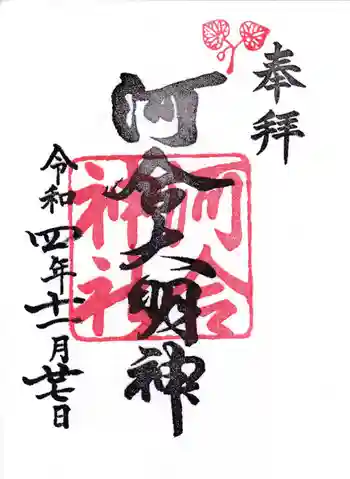 奉拝
河合大明神
河合神社
令和四年十一月廿七日